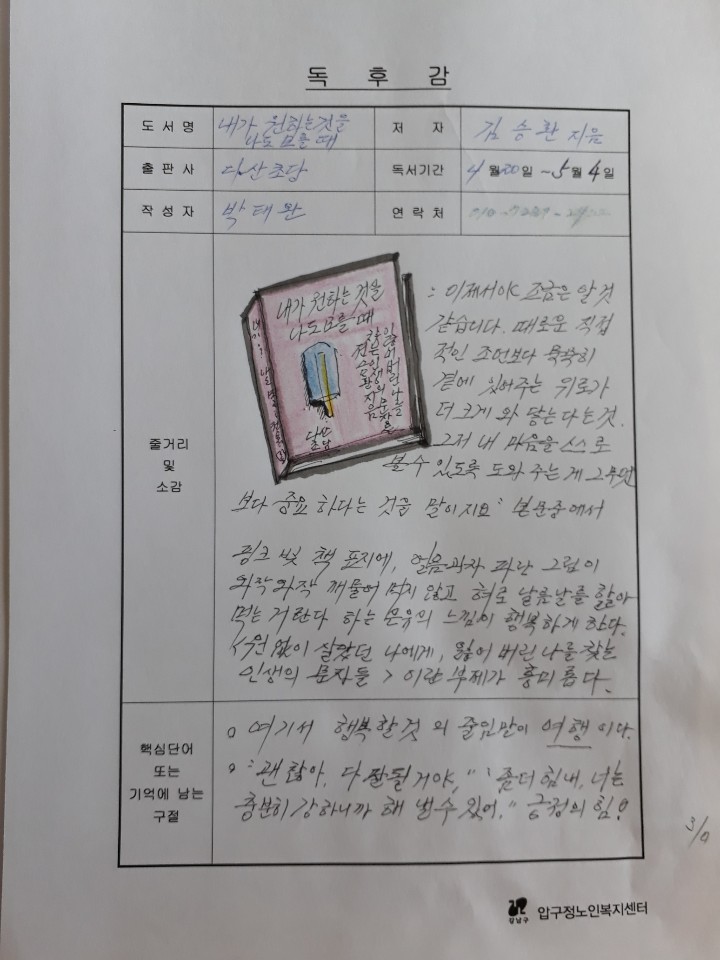 독 후 감
도 서 명 내가 원하는것을 나도 모를 때 저 자 김승환 지음
출 판 사 다산초당 독서기간 4월20일 ~5월4일
작 성 자 박태완 연 락 처
내가 원하는 것을
나도모를 때
잃어버린 나를
찾는 인생의 문장들
전승환 지음
다산
초당
: 이제서야 조금은 알 것
같습니다. 때로운 직접
적인 조언보다 묵묵히
곁에 있어주는 위로가
더 크게 와 닿는다는것.
그저 내 마음을 스스로
볼 수 있도록 도와 주는 게 그무엇
보다 중요 하다는 것을 말이지요" 본문중에서
줄거리
및
소감
핑크 빛 책 표지에, 얼음과자 파란 그림이
와작 와작 깨물어 먹지 않고 혀로 날름날름 핥아
먹는 거란다 하는 은유의 느낌이 행복하게 한다.
시원없이 살았던 나에게, 잃어 버린 나를 찾는
인생의 문장들 > 이란 부제가 흥미롭다.
핵심단어
또는
기억에 남는
구절
o 여기서 행복할것 의 줄임말이 여행 이다.
o "괜찮아, 다 잘될거야," "좀더 힘내, 너는
충분히 강하니까 해 낼수 있어." 긍정의 힘!
3/4
강남구 압구정노인복지센터